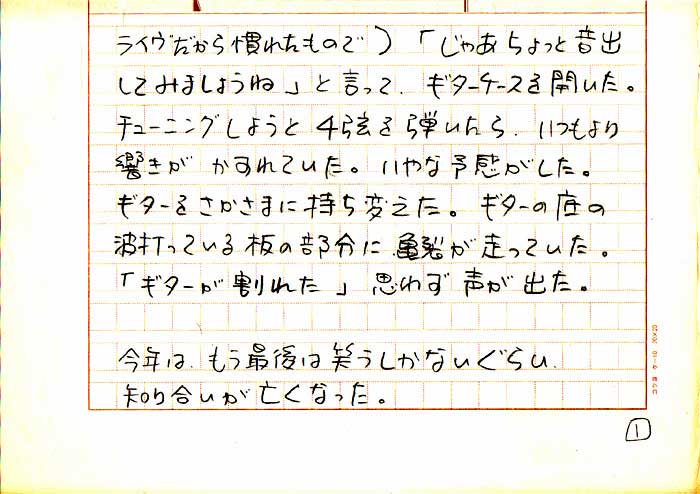 ライヴだから慣れたもので)「じゃあちょっと音出
してみましょうね」と言って、ギターケースを開いた。
チューニングしようと4弦を弾いたら、いつもより
響きが かすれていた。いやな予感がした。
ギターをさかさまに持ち変えた。ギターの底の
波打っている板の部分に亀裂が走っていた。
「ギターが割れた」思わず声が出た。
今年は、もう最後は笑うしかないぐらい、
知り合いが亡くなった。
1